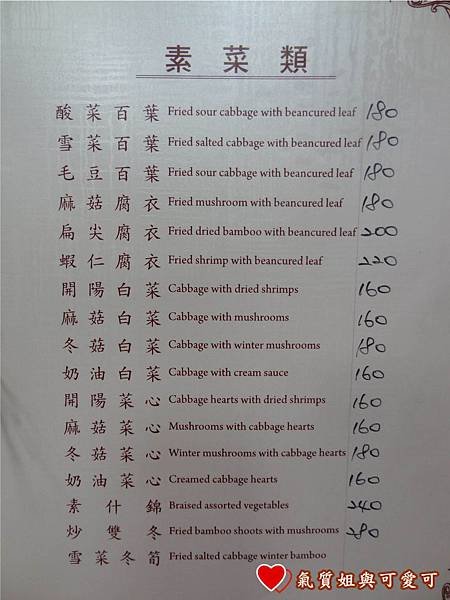 素菜類
酸菜百葉 Fried sour cabbage with beancured leaf 180
雪菜百葉 Fried salted cabbage with beancured leaf 180
毛豆百葉 Fried sour cabbage with beancured leaf 180
麻菇腐衣 Fried mushroom with beancured leaf 180
扁尖腐衣 Fried dried bamboo with beancured leaf 200
蝦仁腐衣 Fried shrimp with beancured leaf 220
開陽白菜 Cabbage with dried shrimps 160
麻菇白菜 Cabbage with mushrooms 160
冬菇白菜 Cabbage with winter mushrooms 180
奶油白菜 Cabbage with cream sauce 160
開陽菜心 Cabbage hearts with dried shrimps 160
麻菇菜心 Mushrooms with cabbage hearts 160
冬菇菜心 Winter mushrooms with cabbage hearts 180
奶油菜心 Creamed cabbage hearts 160
素什錦 Braised assorted vegetables 240
炒雙冬 Fried bamboo shoots with mushrooms 280
雪菜冬筍 Fried salted cabbage winter bamboo
氣質姐與可愛可